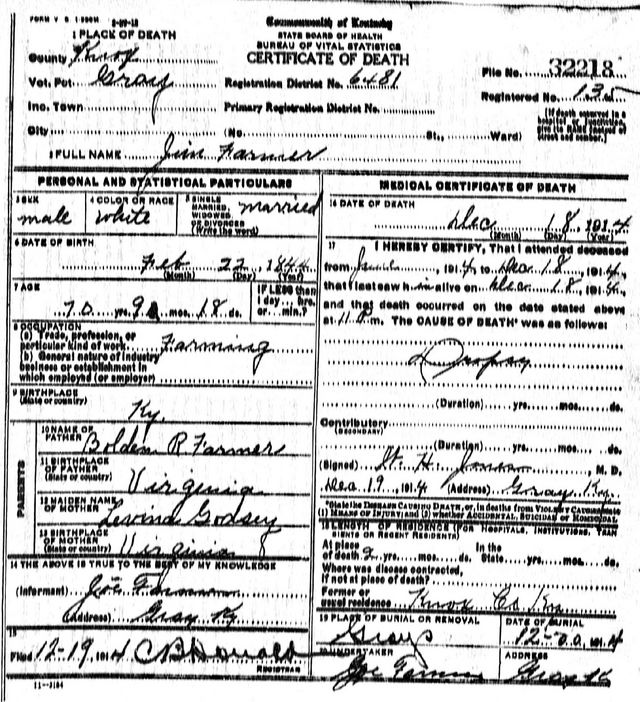 FORM V. S. 1-50M 2-27-13
Commonwealth of Kentucky
STATE BOARD OF HEALTH
BUREAU OF VITAL STATISTICS
CERTIFICATE OF DEATH
1 PLACE OF DEATH
County Knox
Vot. Pct Gray
Registration District No. 6481
File No. 32218
Inc. Town
Primary Registration District No.
Registered No. 135
City (No. St., Ward)
[If death occurred in a hospital or institution, give its NAME instead of street and number.]
2 FULL NAME Jim Farmer
PERSONAL AND STATISTICAL PARTICULARS
3 SEX male
4 COLOR OR RACE White
5 SINGLE MARRIED, WIDOWED, OR DIVORCED (Write the word) married
6 DATE OF BIRTH
Feb 22, 1844
(Month) (Day) (Year)
7 AGE
70 yrs. 9 mos. 18 ds.
IF LESS than 1 day... hrs. or... min.?
8 OCCUPATION
(a) Trade, profession, or particular kind of work Farming
(b) General nature of industry
business or establishment in
which employed (or employer)
9 BIRTHPLACE
(State or country) Ky.
PARENTS
10 NAME OF FATHER Bolden R Farmer
11 BIRTHPLACE OF FATHER (State or country) Virginia
12 MAIDEN NAME OF MOTHER Levina Godsey
13 BIRTHPLACE OF MOTHER (State or country) Virginia
14 THE ABOVE IS TRUE TO THE BEST OF MY KNOWLEDGE
(Informant) Joe Farmer
(Address) Gray Ky
15
Filed 12-19, 1914 C B Donald
REGISTRAR
11-3184
MEDICAL CERTIFICATE OF DEATH
16 DATE OF DEATH
Dec 18 1914
(Month) (Day) (Year)
17 I HEREBY CERTIFY, That I attended deceased
from 1914, to Dec. 18, 1914,
that I last saw him alive on Dec. 18, 1914,
and that death occurred on the date stated above
at 11 P.m. The CAUSE OF DEATH* was as follows:
Dropsy
(Duration) yrs. mos. ds.
Contributory
(SECONDARY)
(Duration) yrs. mos. ds.
(Signed) H. M. D.
Dec 19, 1914 (Address) Gray, Ky.
*State the DISEASE CAUSING DEATH, or, in deaths from VIOLENT CAUSES state
(1) MEANS OF INJURY; and (2) whether ACCIDENTAL, SUICIDAL or HOMICIDAL
18 LENGTH OF RESIDENCE (FOR HOSPITALS, INSTITUTIONS, TRANSIENTS OR RECENT RESIDENTS)
At place of death 2 yrs. mos. ds. In the State yrs. mos. ds.
Where was disease contracted,
if not at place of death?
Former or usual residence Knox Co Ky
19 PLACE OF BURIAL OR REMOVAL Grays
DATE OF BURIAL 12- 1914
20 UNDERTAKER Joe Farmer
ADDRESS Gray Ky